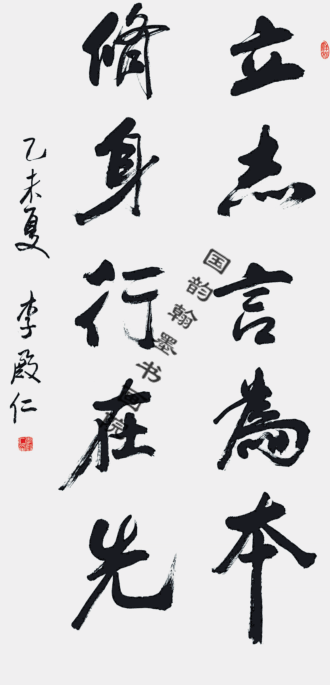 立志言為本
修身行在先
乙未夏 李殿仁
国韵翰墨书画院